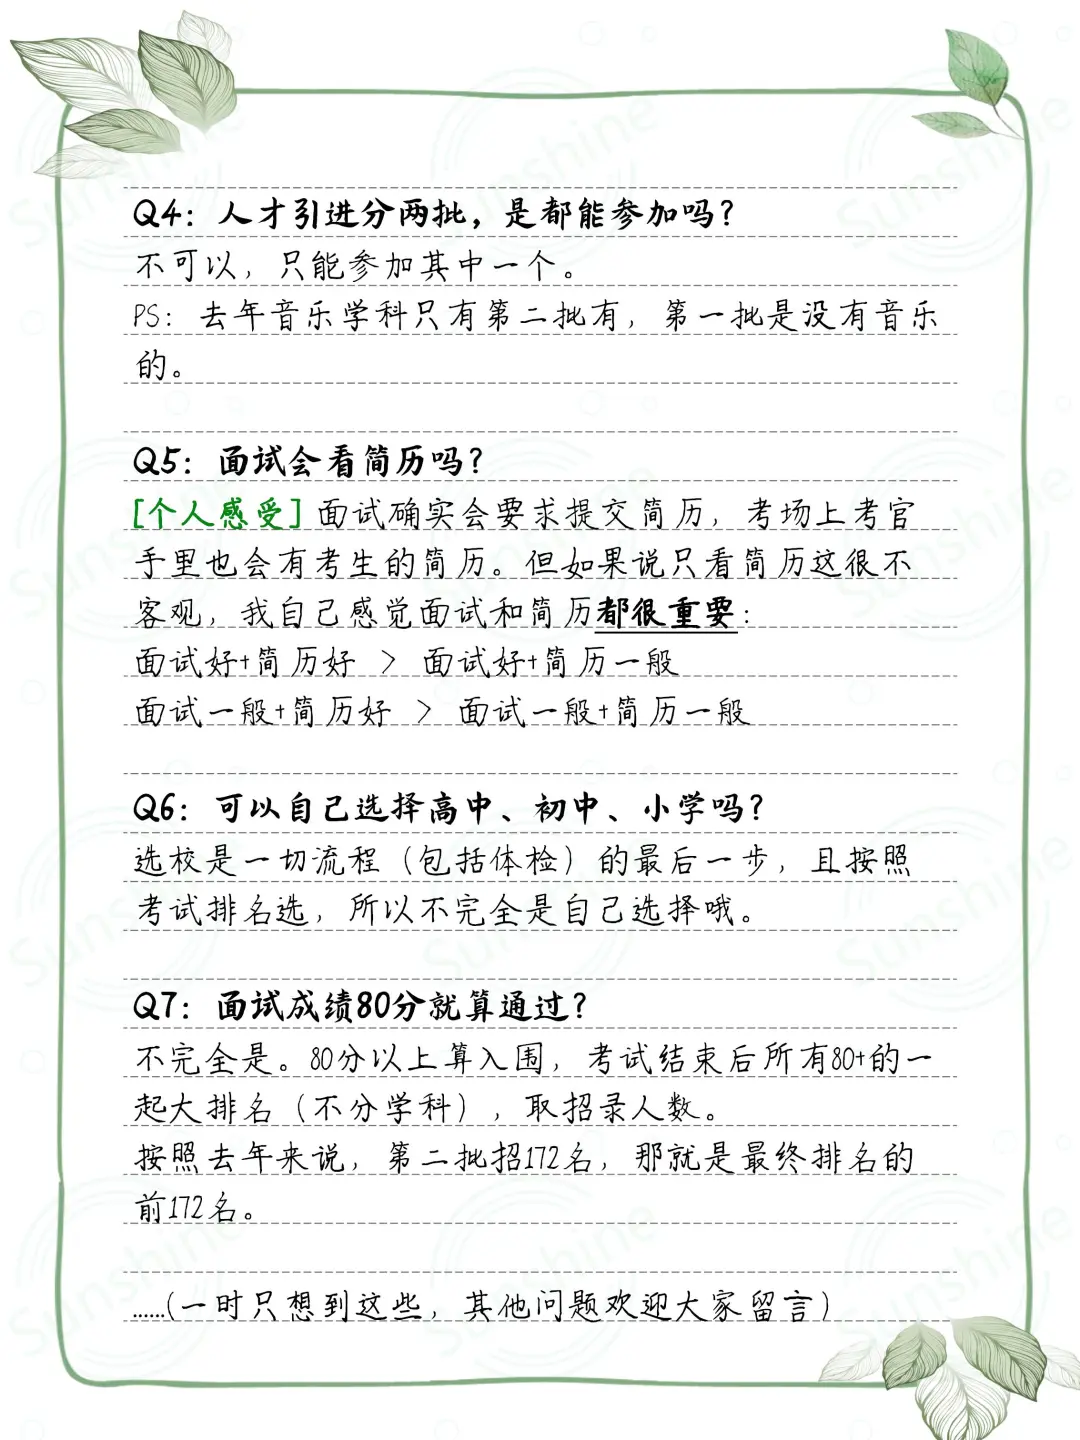 Q4：人才引进分两批，是都能参加吗？
不可以，只能参加其中一个。
PS：去年音乐学科只有第二批有，第一批是没有音乐
的。
Q5：面试会看简历吗？
[个人感受] 面试确实会要求提交简历，考场上考官
手里也会有考生的简历。但如果说只看简历这很不
客观，我自己感觉面试和简历都很重要：
面试好+简历好 > 面试好+简历一般
面试一般+简历好 > 面试一般+简历一般
Q6：可以自己选择高中、初中、小学吗？
选校是一切流程（包括体检）的最后一步，且按照
考试排名选，所以不完全是自己选择哦。
Q7：面试成绩80分就算通过？
不完全是。80分以上算入围，考试结束后所有80+的一
起大排名（不分学科），取招录人数。
按照去年来说，第二批招172名，那就是最终排名的
前172名。
......(一时只想到这些，其他问题欢迎大家留言)
Sunshine